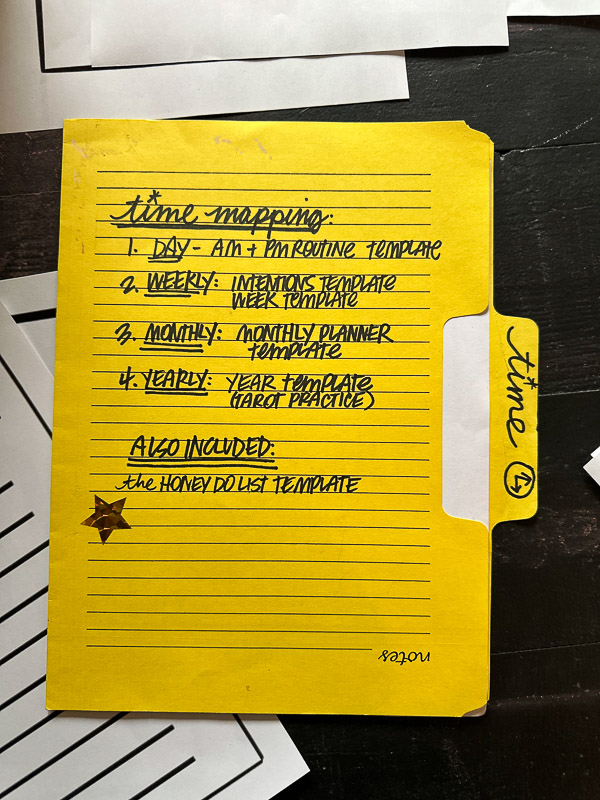 time mapping:
1. DAY - AM + PM ROUTINE TEMPLATE
2. WEEKLY: INTENTIONS TEMPLATE
WEEK TEMPLATE
3. MONTHLY: MONTHLY PLANNER
template
4. YEARLY: YEAR template
(TAROT PRACTICE)
ALSO INCLUDED:
the HONEY DO LIST TEMPLATE
notes
time